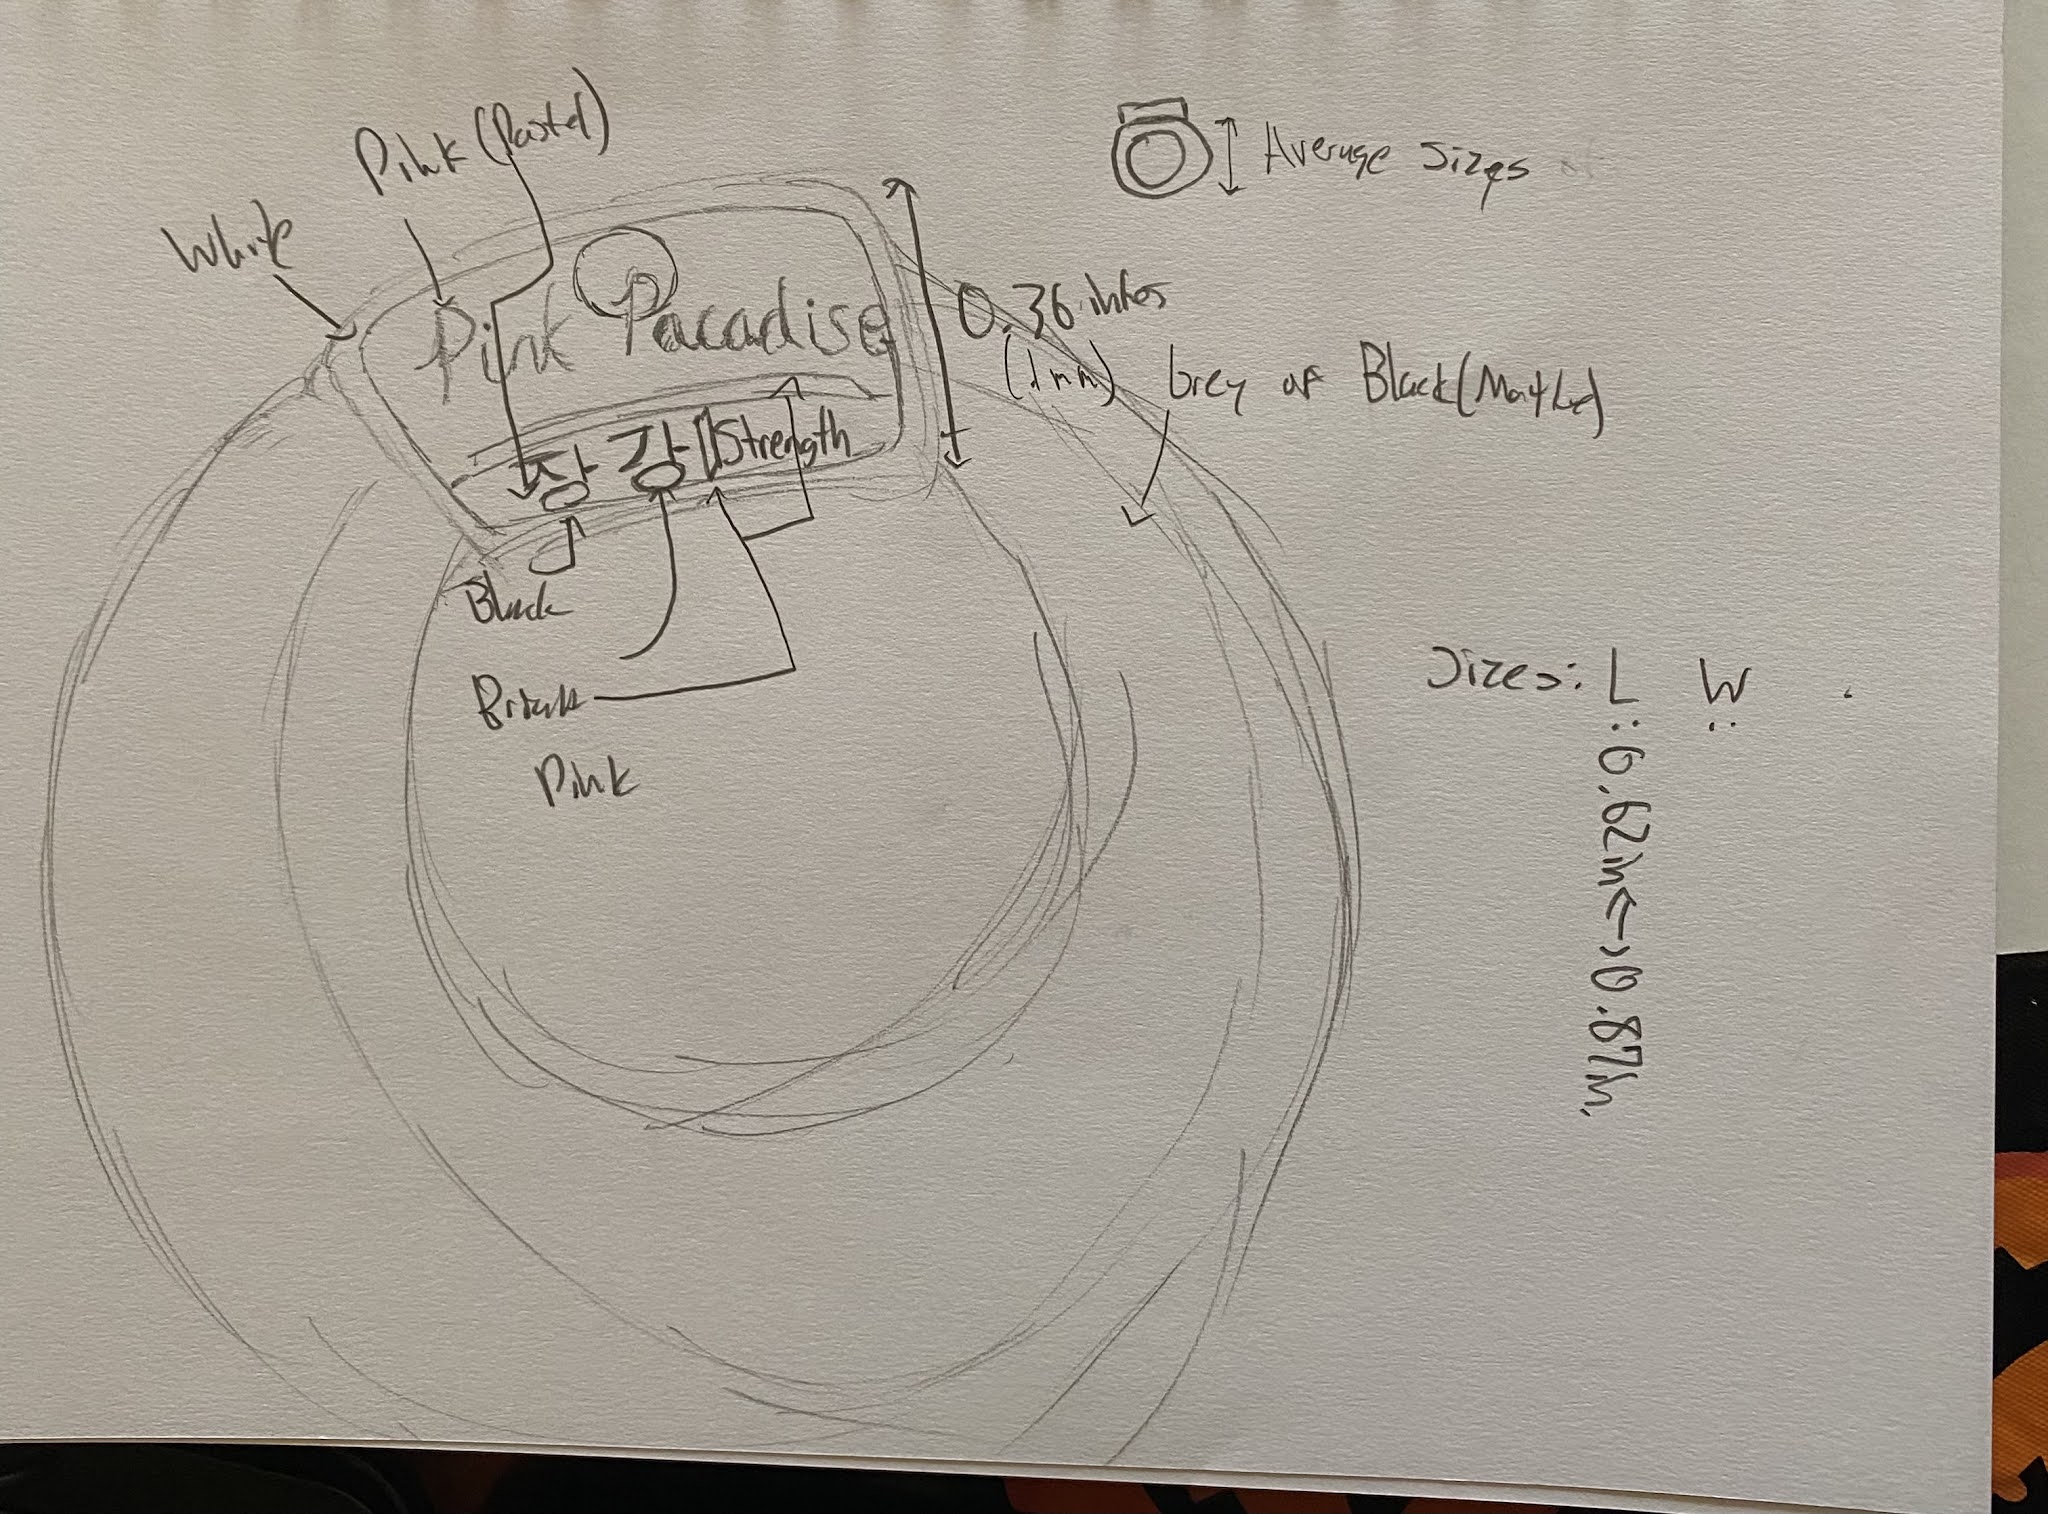 Pink (Pastel)
White
Average Sizes
Pink Paradise
0.36 inhes
(1mm)
Grey or Black (Marble)
장 강 Strength
Black
Pink
Sizes: L W
: 0.62in <-> 0.87in.
: